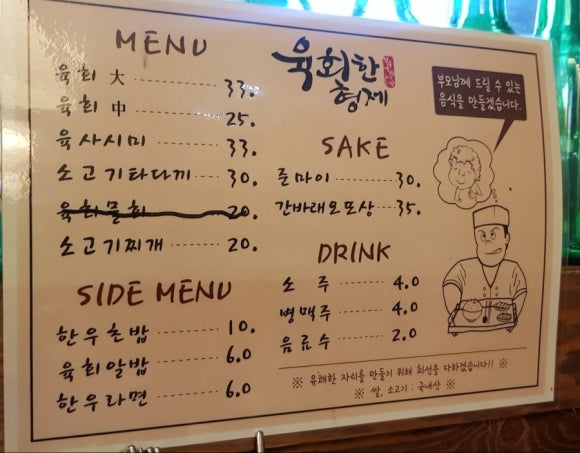 MENU
육회 大 33.
육회 中 25.
육사시미 33.
소고기타다끼 30.
육회물회 20.
소고기찌개 20.
SIDE MENU
한우초밥 10.
육회알밥 6.0
한우라면 6.0
육회한
형제
부모님께 드릴 수 있는
음식을 만들겠습니다.
SAKE
준마이 30.
간바래오또상 35.
DRINK
소 주 4.0
병맥주 4.0
음료수 2.0
※ 유쾌한 자리를 만들기 위해 최선을 다하겠습니다!! ※
※ 쌀, 소고기 : 국내산 ※